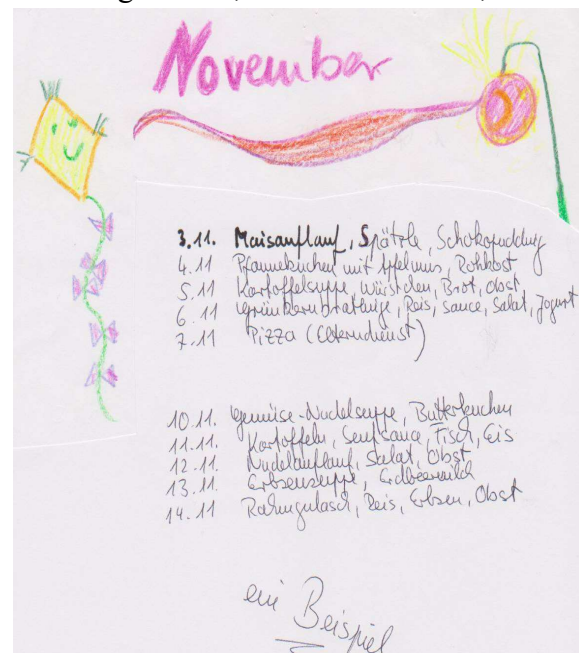 November
3.11. Maisauflauf, Spätzle, Schokopudding
4.11 Pfannekuchen mit Apfelmus, Rohkost
5.11 Kartoffelsuppe, Würstchen, Brot, Obst
6.11 Grünkernbratlinge, Reis, Sauce, Salat, Jogurt
7.11 Pizza (Elterndienst)
10.11. Gemüse-Nudelsuppe, Butterkuchen
11.11. Kartoffeln, Senfsauce, Fisch, Eis
12.11 Nudelauflauf, Salat, Obst
13.11 Erbsensuppe, Erdbeermilch
14.11 Rahmgulasch, Reis, Erbsen, Obst
ein Beispiel